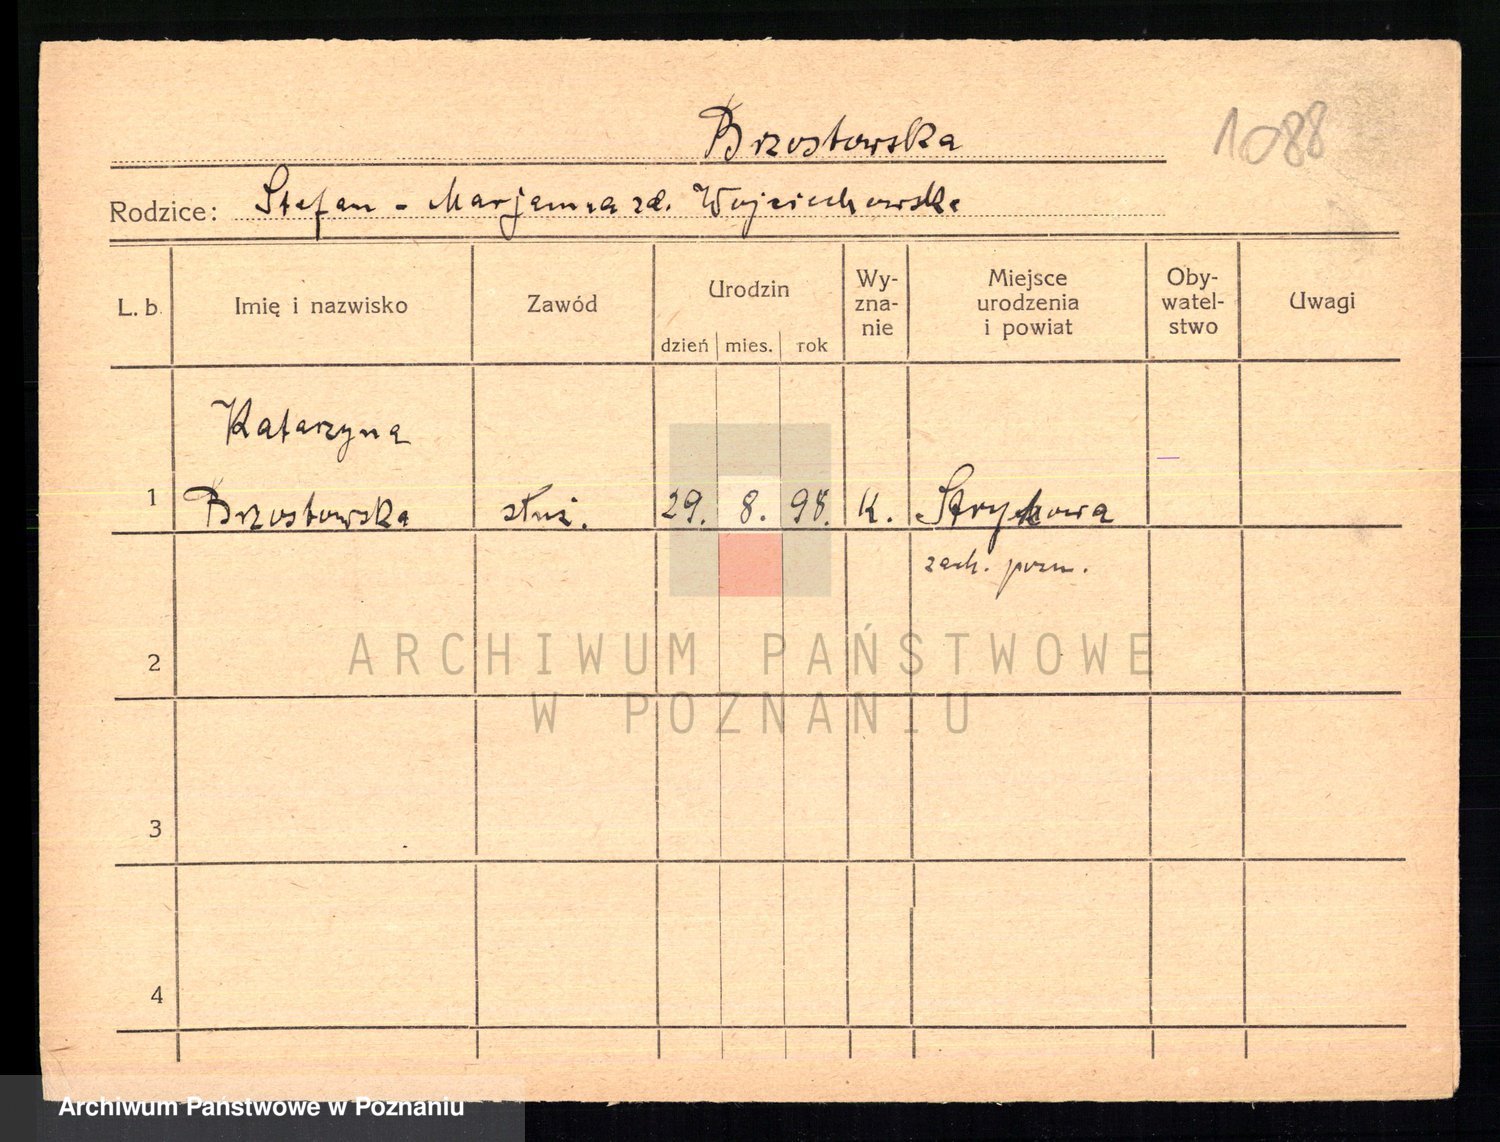 Brzostowska
1088
Rodzice: Stefan - Marjanna zd. Wojciechowska
L. b.
Imię i nazwisko
Zawód
Urodzin
dzień mies. rok
Wy-
zna-
nie
Miejsce
urodzenia
i powiat
Oby-
watel-
stwo
Uwagi
Katarzyna
1 Brzostowska służ. 29. 8. 98. K. Strykowa
zach. pozn.
2
3
4
ARCHIWUM PAŃSTWOWE
W POZNANIU
Archiwum Państwowe w Poznaniu